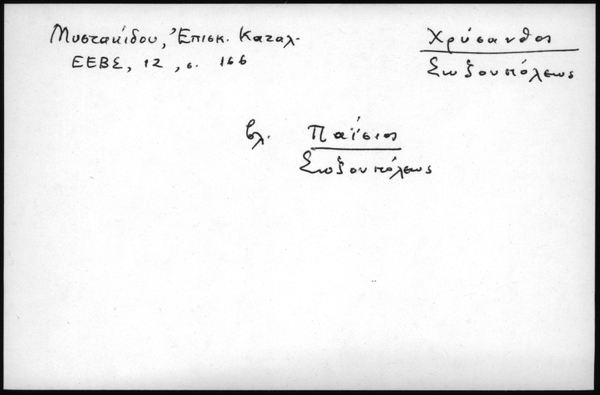 Μυστακίδου, Ἐπισκ. Καταλ-
ΕΕΒΣ, 12, σ. 166
Χρύσανθος
Σωζουπόλεως
βλ. Παΐσιος
Σωζουπόλεως